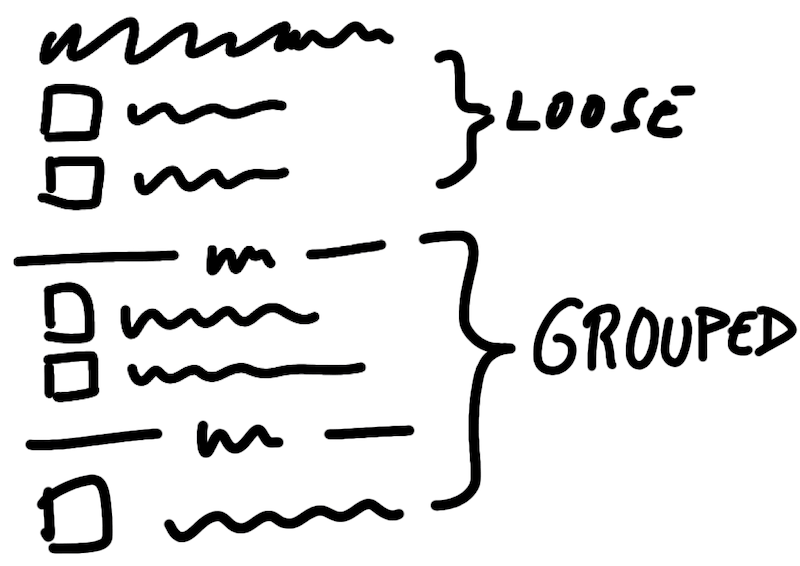 LOOSE
GROUPED